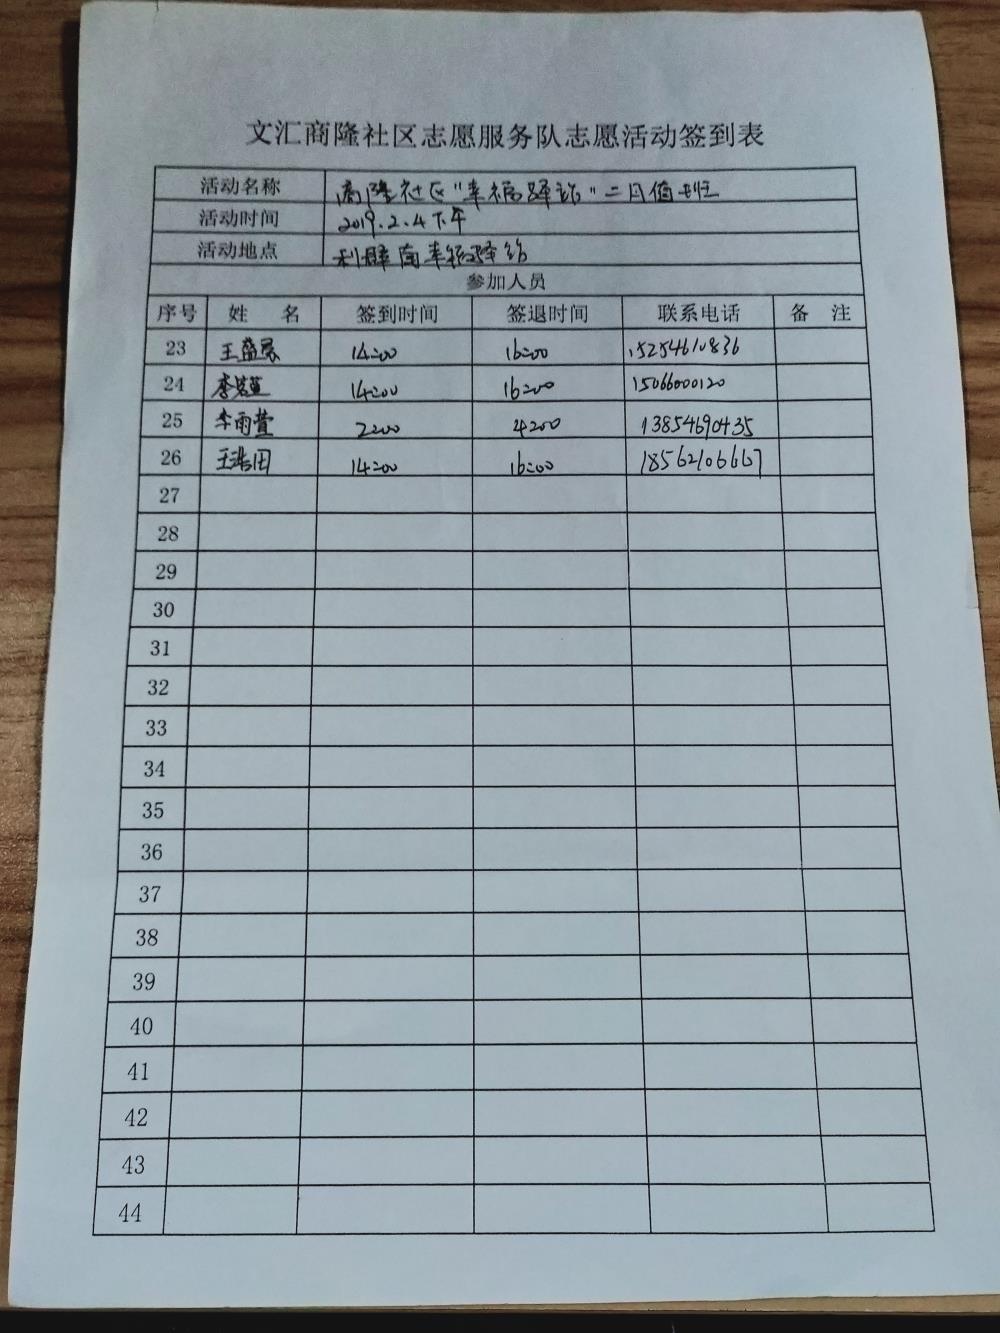 文汇商隆社区志愿服务队志愿活动签到表
活动名称 商隆社区"幸福驿站"二月值班
活动时间 2019.2.4下午
活动地点 利群南幸福驿站
参加人员
序号 姓 名 签到时间 签退时间 联系电话 备 注
23 王 14:00 16:00 15254610836
24 李 14:00 16:00 15066000120
25 李雨萱 2:00 4:00 13854690435
26 王浩田 14:00 16:00 18562106667
27
28
29
30
31
32
33
34
35
36
37
38
39
40
41
42
43
44